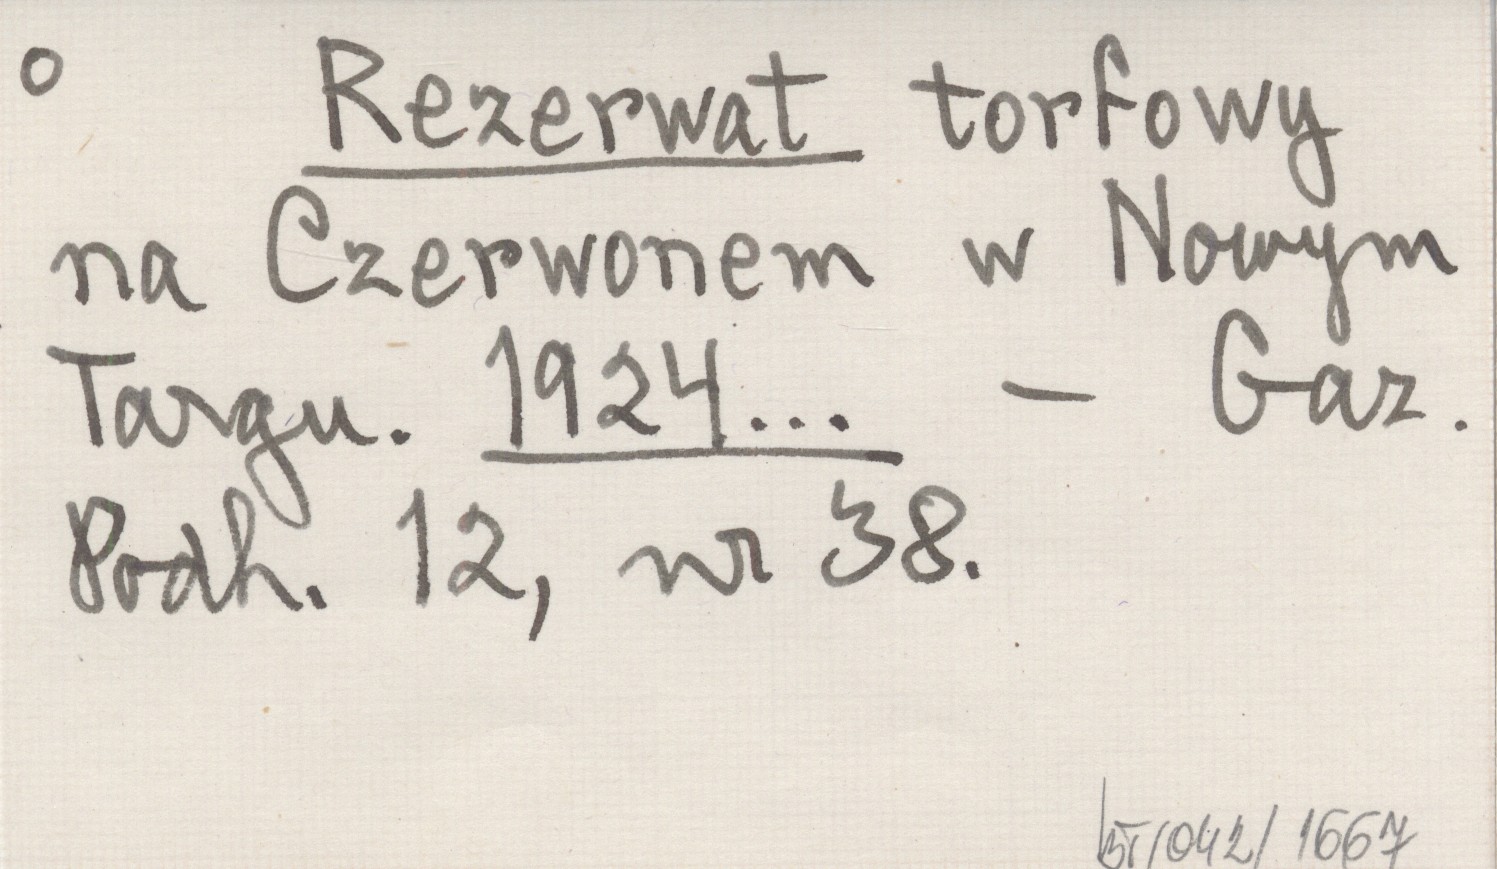 ° Rezerwat torfowy
na Czerwonem w Nowym
Targu. 1924... – Gaz.
Podh. 12, nr 38.
/042/ 1667